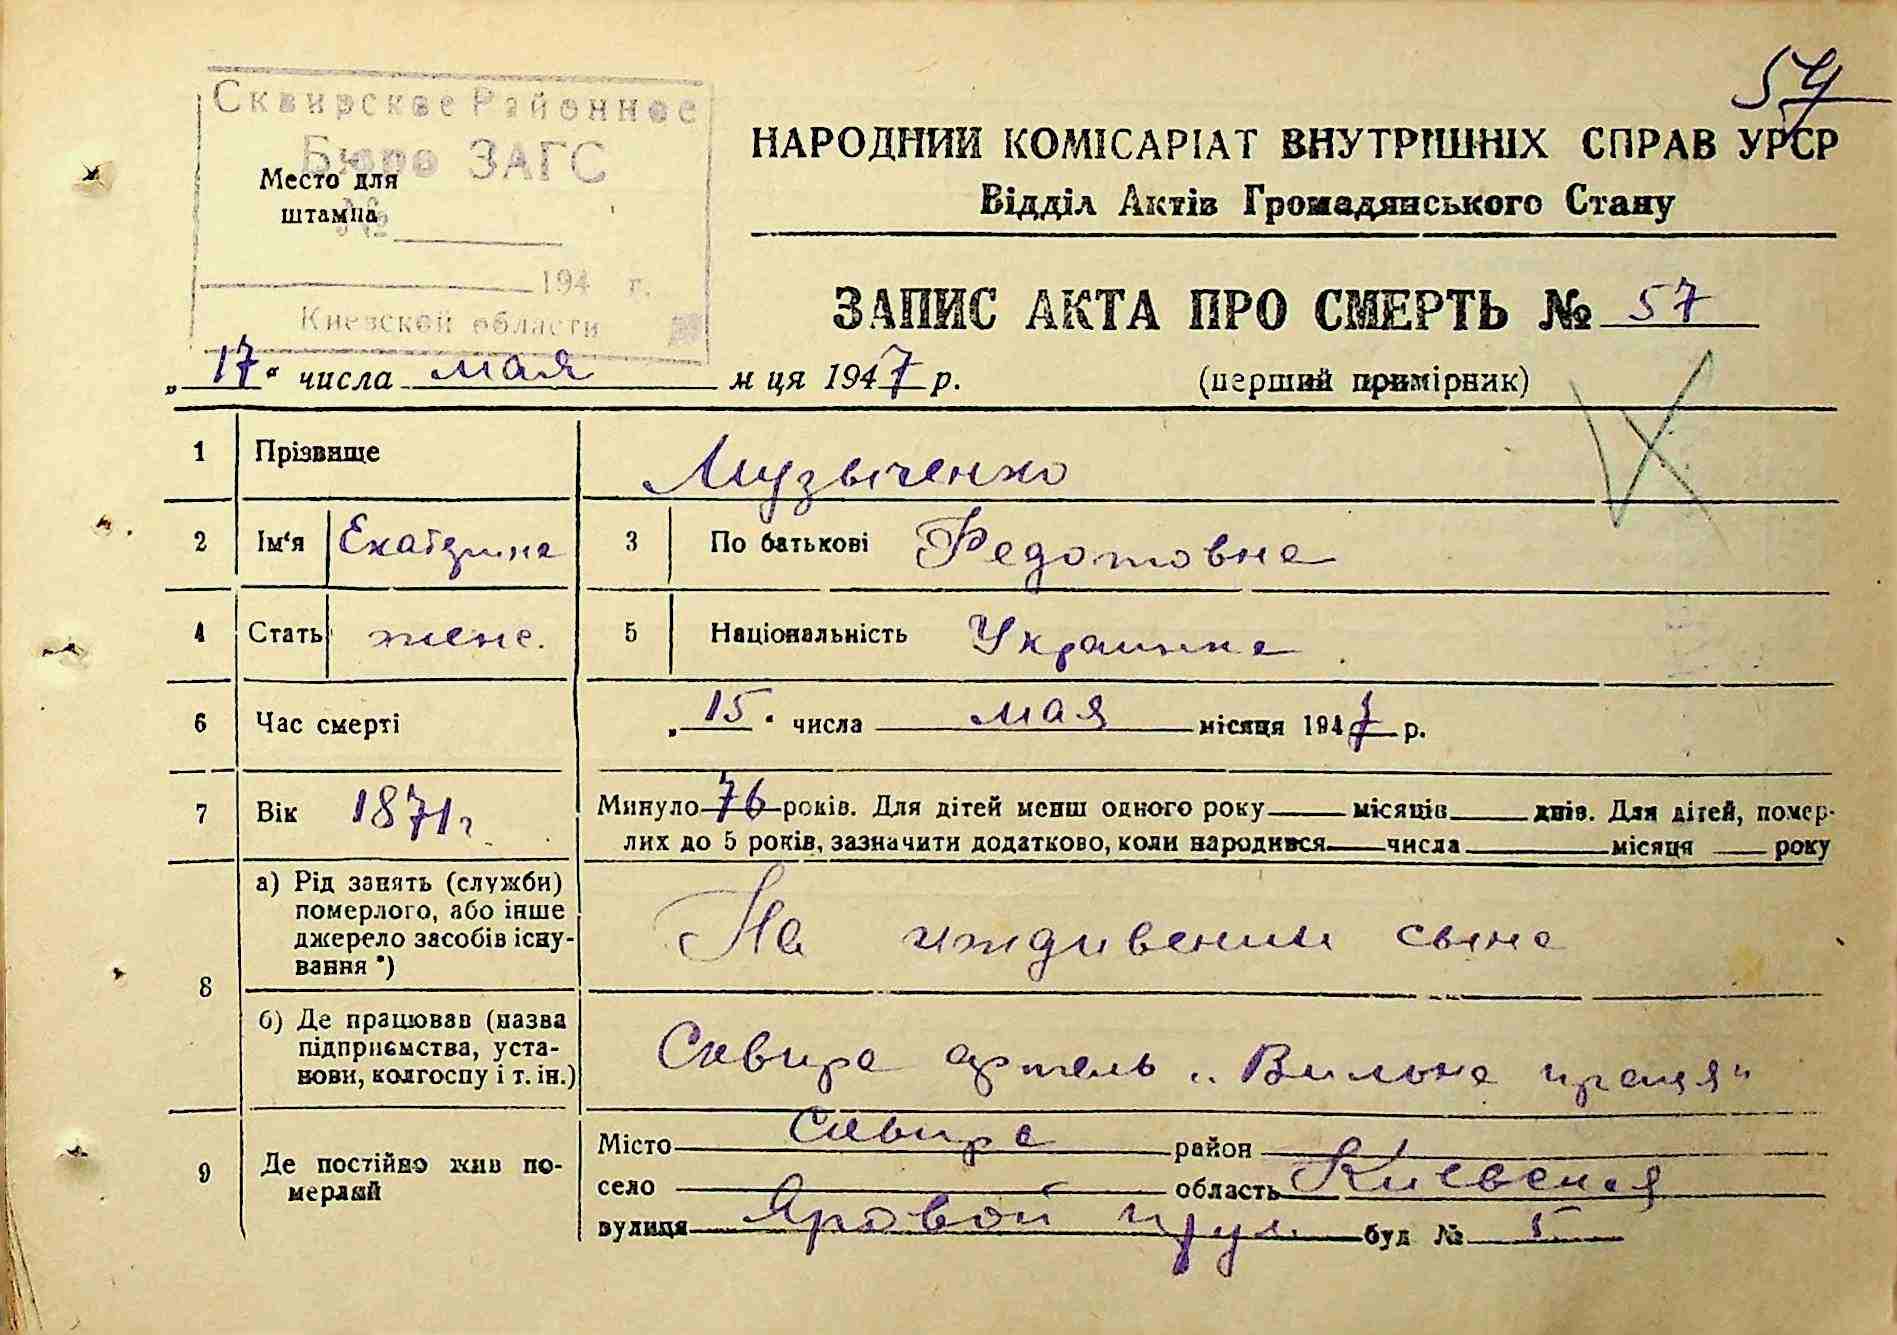 57
Сквирское Районное
Бюро ЗАГС
№
194 г.
Киевской области
Место для
штампа
НАРОДНИЙ КОМІСАРІАТ ВНУТРІШНІХ СПРАВ УРСР
Відділ Актів Громадянського Стану
ЗАПИС АКТА ПРО СМЕРТЬ № 57
„17“ числа мая м ця 1947 р. (перший примірник)
1 Прізвище Музыченко
2 Ім‘я Екатерина 3 По батькові Федотовна
4 Стать женс. 5 Національність Украинка
6 Час смерті „15“ числа мая місяця 1947 р.
7 Вік 1871г Минуло 76 років. Для дітей менш одного року місяців днів. Для дітей, помер-
лих до 5 років, зазначити додатково, коли народився числа місяця року
8
а) Рід занять (служби)
померлого, або інше
джерело засобів існу-
вання *)
На иждивении сына
б) Де працював (назва
підприємства, уста-
нови, колгоспу і т. ін.)
Сквира артель „Вильна праця"
9 Де постійно жив по-
мерлий
Місто Сквира район
село область Киевская
вулиця Яровой буд № 5